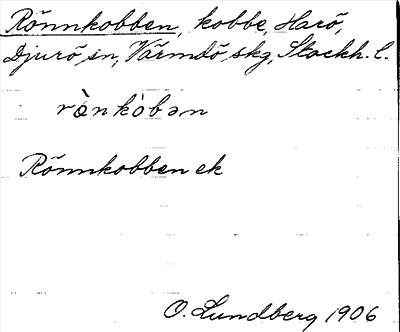 Rönnkobben, kobbe, Harö,
Djurö sn, Värmdö skg, Stockh. l.
rö̀nkòbən
Rönnkobben ek
O. Lundberg 1906